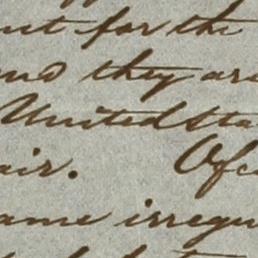 for the
and they are
United Sta
air. Of
ame irregu